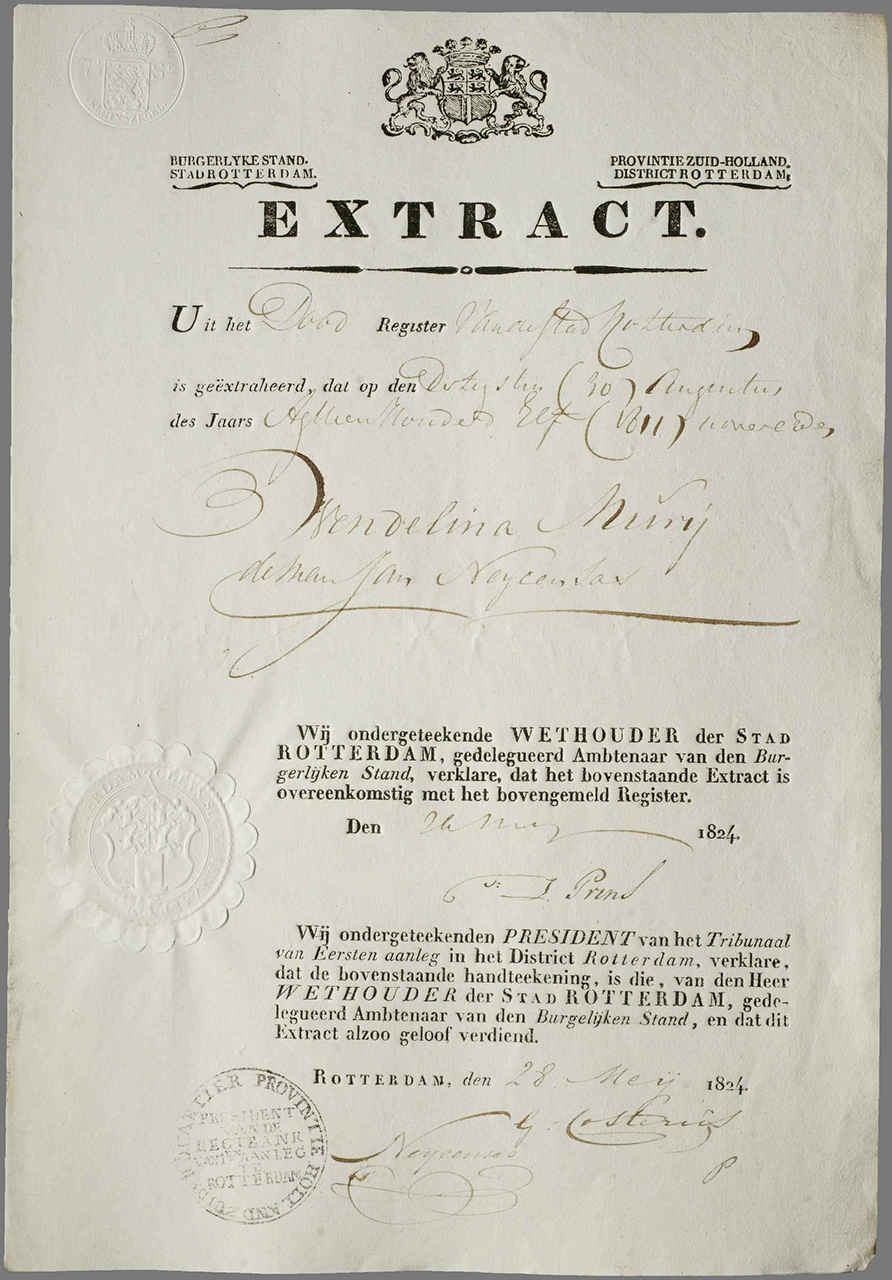 BURGERLYKE STAND.
STAD ROTTERDAM.
PROVINTIE ZUID-HOLLAND.
DISTRICT ROTTERDAM,
EXTRACT.
Uit het Dood Register Van de Stad Rotterdam
is geëxtraheerd, dat op den Dertigsten (30) Augustus
des Jaars Agttien Honderd Elf (1811)
Wendelina Murij
de man Jan
Wij ondergeteekende WETHOUDER der STAD
ROTTERDAM, gedelegueerd Ambtenaar van den Bur-
gerlijken Stand, verklare, dat het bovenstaande Extract is
overeenkomstig met het bovengemeld Register.
Den 26 Mey 1824.
J. Prins
Wij ondergeteekenden PRESIDENT van het Tribunaal
van Eersten aanleg in het District Rotterdam, verklare,
dat de bovenstaande handteekening, is die, van den Heer
WETHOUDER der STAD ROTTERDAM, gede-
legueerd Ambtenaar van den Burgelijken Stand, en dat dit
Extract alzoo geloof verdiend.
ROTTERDAM, den 28 Meij 1824.
PROVINTIE HOLLAND
PRESIDENT
VAN DE
REGTBANK
ROTTERDAM